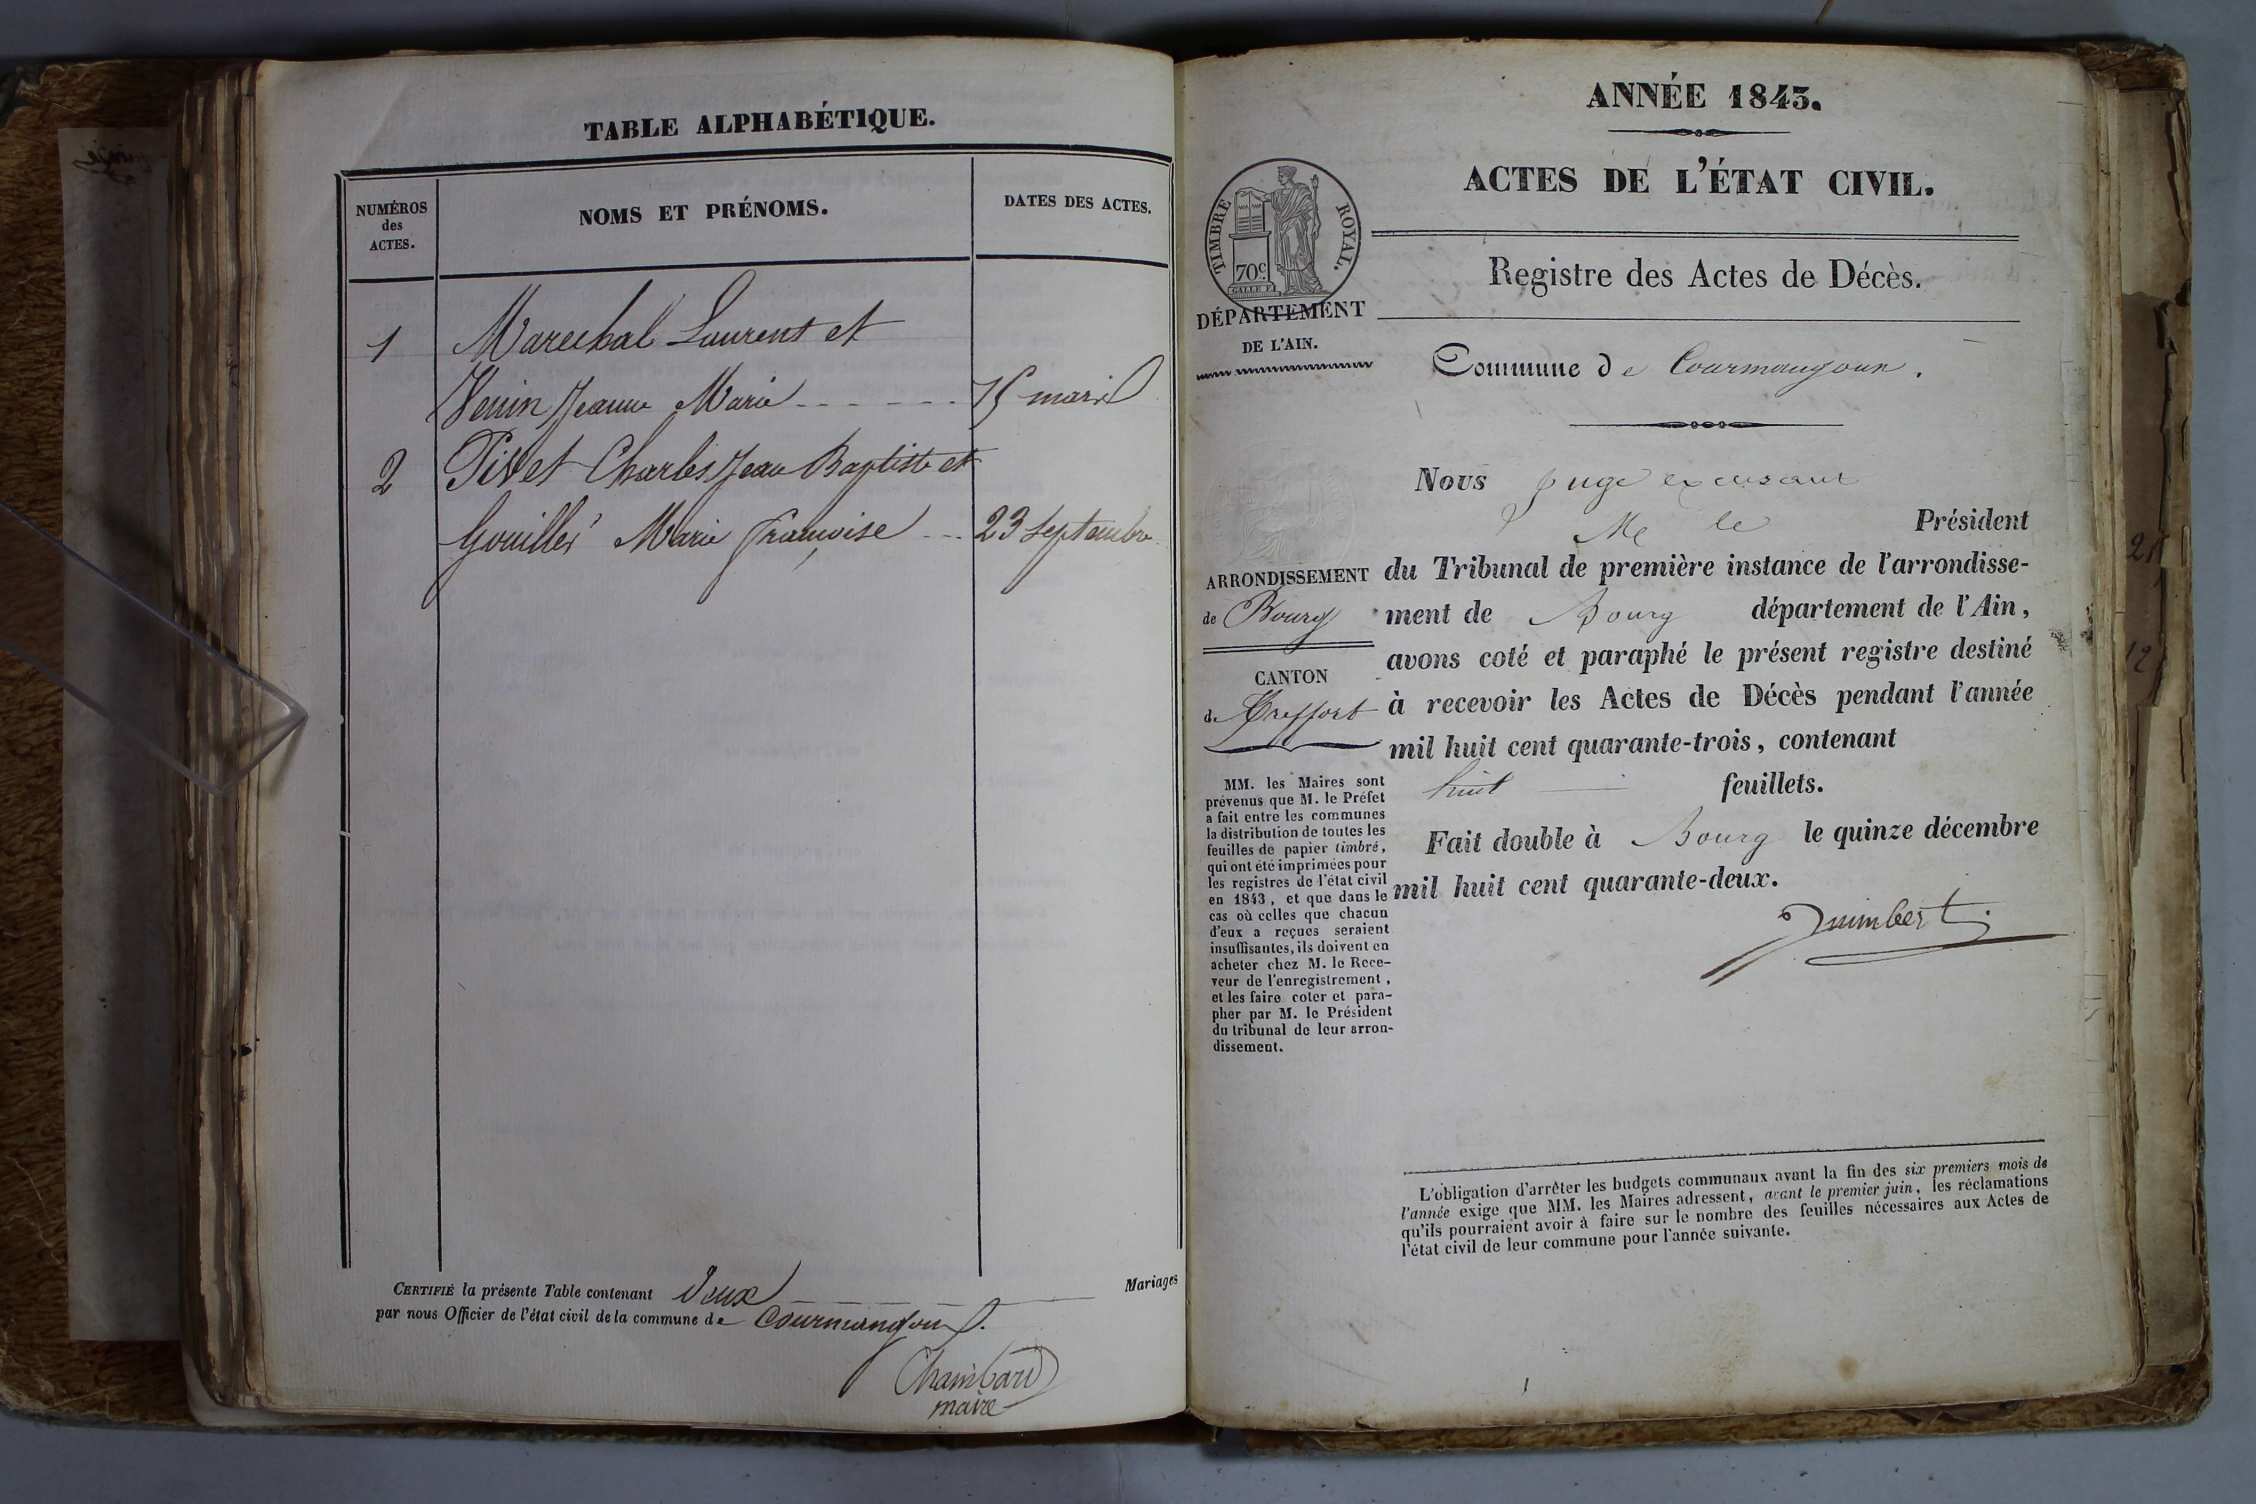 TABLE ALPHABÉTIQUE.
NUMÉROS
des
ACTES.
NOMS ET PRÉNOMS.
DATES DES ACTES.
1 Marechal Laurent et
Jeanne Marie
2 Pivet Charles Jean Baptiste et
Marie françoise 23 septembre
CERTIFIÉ la présente Table contenant deux Mariages
par nous Officier de l'état civil de la commune de Courmangoux.
Chambard
maire
ANNÉE 1843.
ACTES DE L'ÉTAT CIVIL.
TIMBRE ROYAL.
70c
GALLE F.
Registre des Actes de Décès.
DÉPARTEMENT
DE L'AIN.
Commune de Courmangoux.
Nous juge
Me le Président
du Tribunal de première instance de l'arrondisse-
ment de Bourg département de l'Ain,
avons coté et paraphé le présent registre destiné
à recevoir les Actes de Décès pendant l'année
mil huit cent quarante-trois, contenant
huit feuillets.
Fait double à Bourg le quinze décembre
mil huit cent quarante-deux.
ARRONDISSEMENT
de Bourg
CANTON
de Treffort
MM. les Maires sont
prévenus que M. le Préfet
a fait entre les communes
la distribution de toutes les
feuilles de papier timbré,
qui ont été imprimées pour
les registres de l'état civil
en 1843, et que dans le
cas où celles que chacun
d'eux a reçues seraient
insuffisantes, ils doivent en
acheter chez M. le Rece-
veur de l'enregistrement,
et les faire coter et para-
pher par M. le Président
du tribunal de leur arron-
dissement.
L'obligation d'arrêter les budgets communaux avant la fin des six premiers mois de
l'année exige que MM. les Maires adressent, avant le premier juin, les réclamations
qu'ils pourraient avoir à faire sur le nombre des feuilles nécessaires aux Actes de
l'état civil de leur commune pour l'année suivante.
1